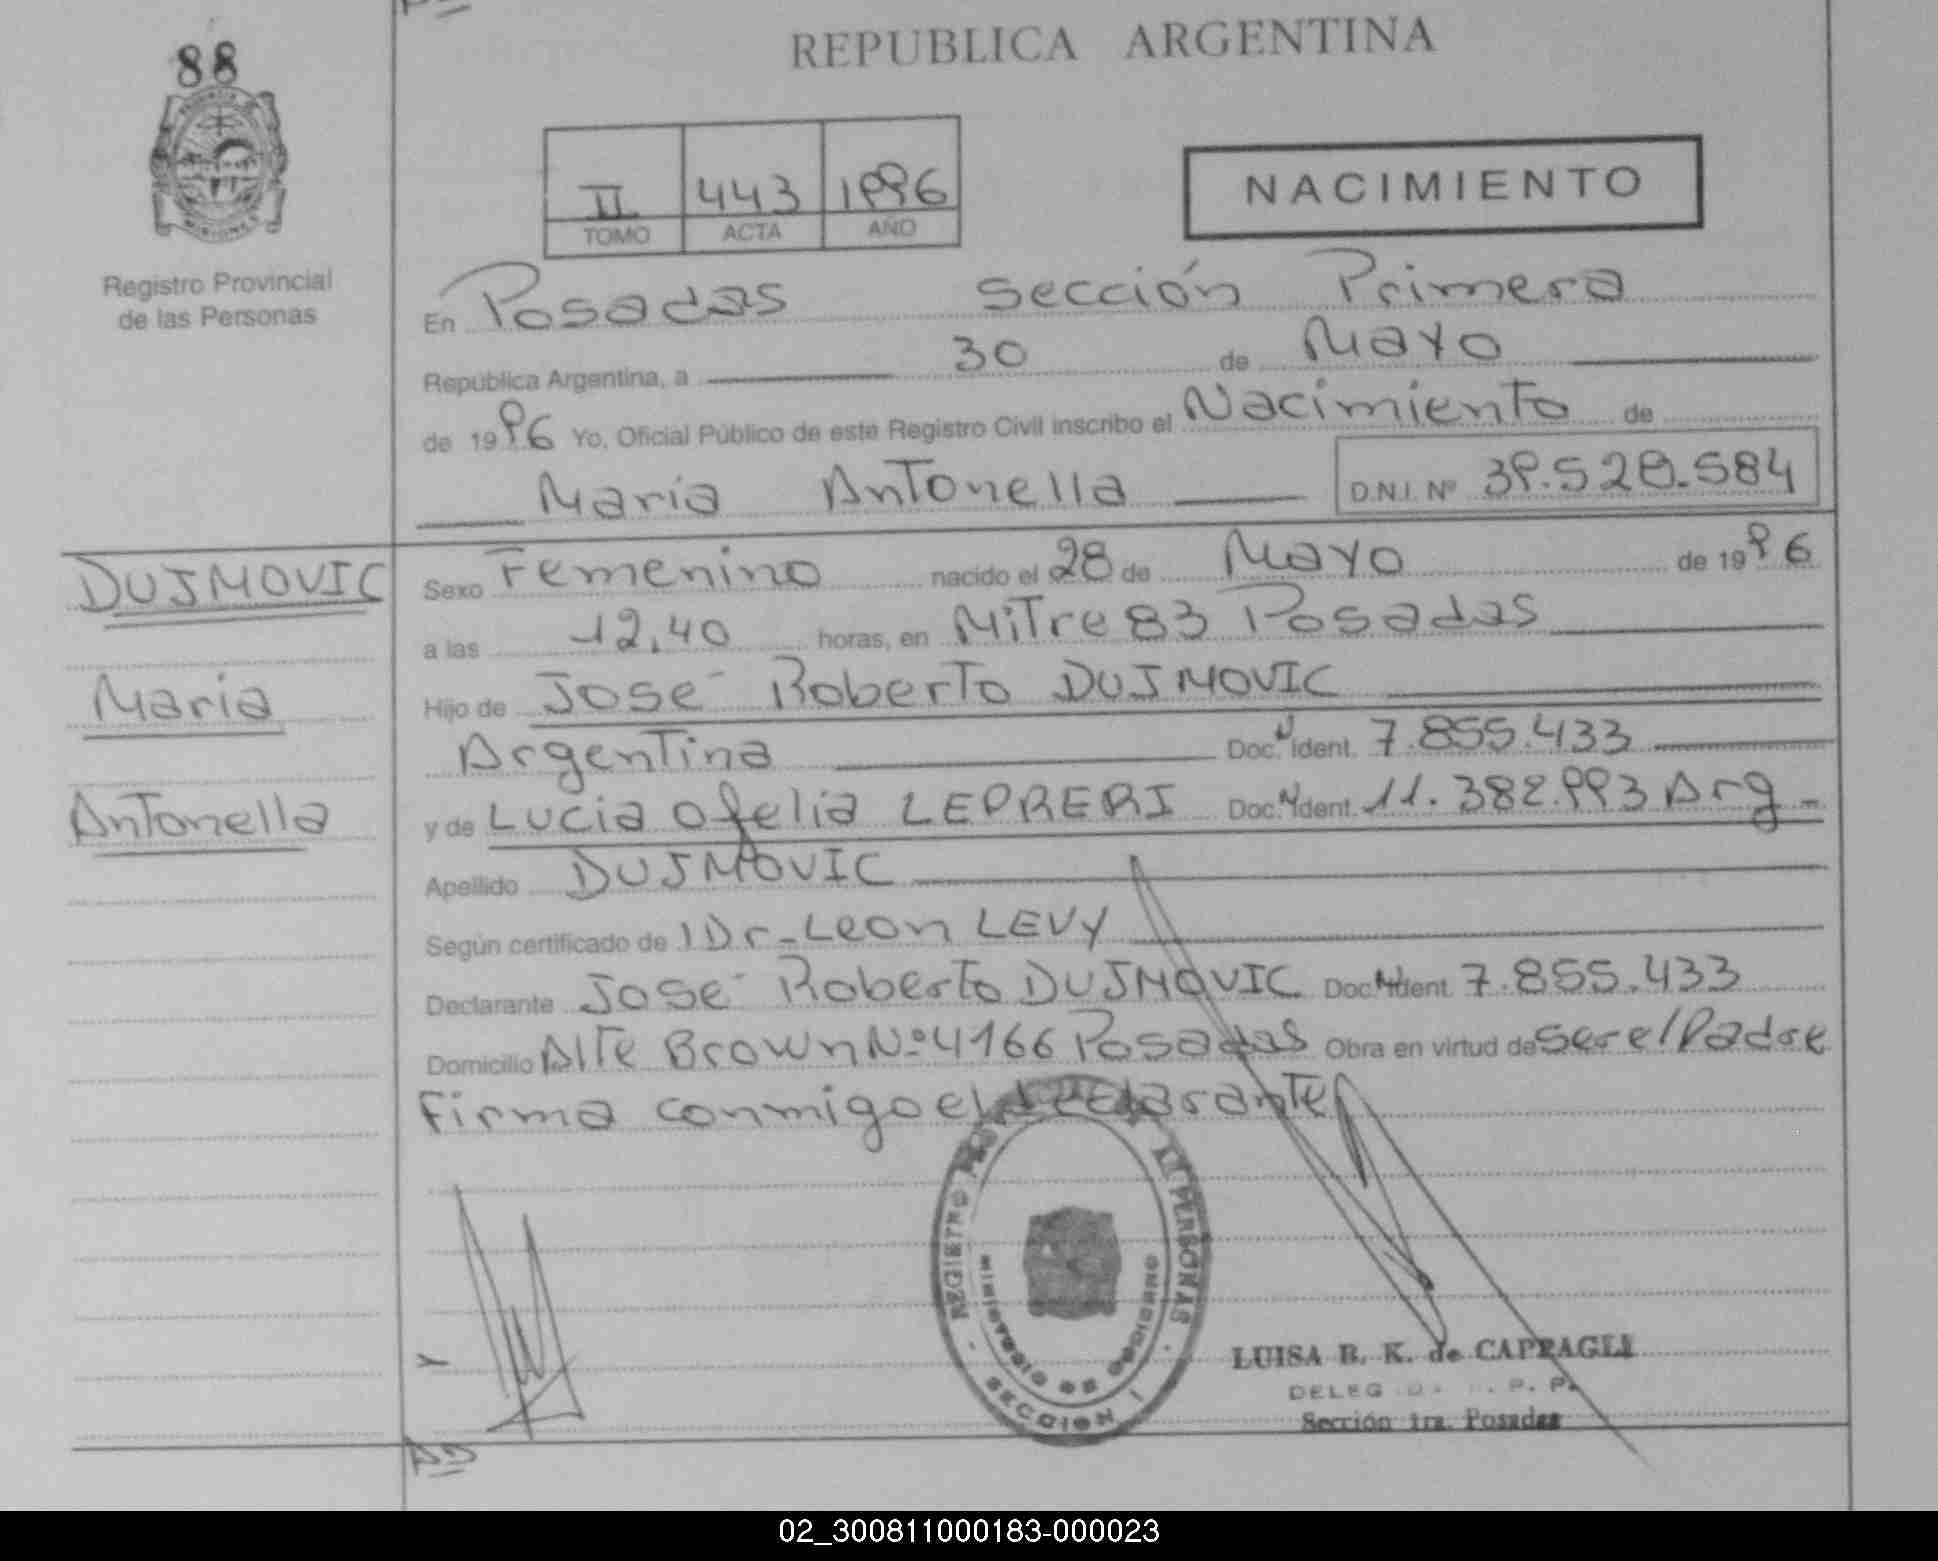 88
REPUBLICA ARGENTINA
II 443 1996
TOMO ACTA AÑO
NACIMIENTO
Registro Provincial
de las Personas
En Posadas sección Primera
República Argentina, a 30 de Mayo
de 1996 Yo, Oficial Público de este Registro Civil inscribo el Nacimiento de
María Antonella D.N.I. Nº 39.528.584
DUJMOVIC
María
Antonella
Sexo Femenino nacido el 28 de Mayo de 1996
a las 12,40 horas, en Mitre 83 Posadas
Hijo de José Roberto DUJMOVIC
Argentina Doc. Ident. 7.855.433
y de Lucia Ofelia LEPRERI Doc. Ident. 11.382.993 Arg
Apellido DUJMOVIC
Según certificado de 1 Dr. Leon LEVY
Declarante José Roberto DUJMOVIC Doc. Ident. 7.855.433
Domicilio Alte Brown Nº 4166 Posadas Obra en virtud de ser el Padre
Firma conmigo el declarante
REGISTRO PERSONAS
MINISTERIO DE GOBIERNO
SECCION 1
LUISA B. K. de CAPRAGLI
DELEG P. P.
Sección 1ra. Posadas
02_300811000183-000023